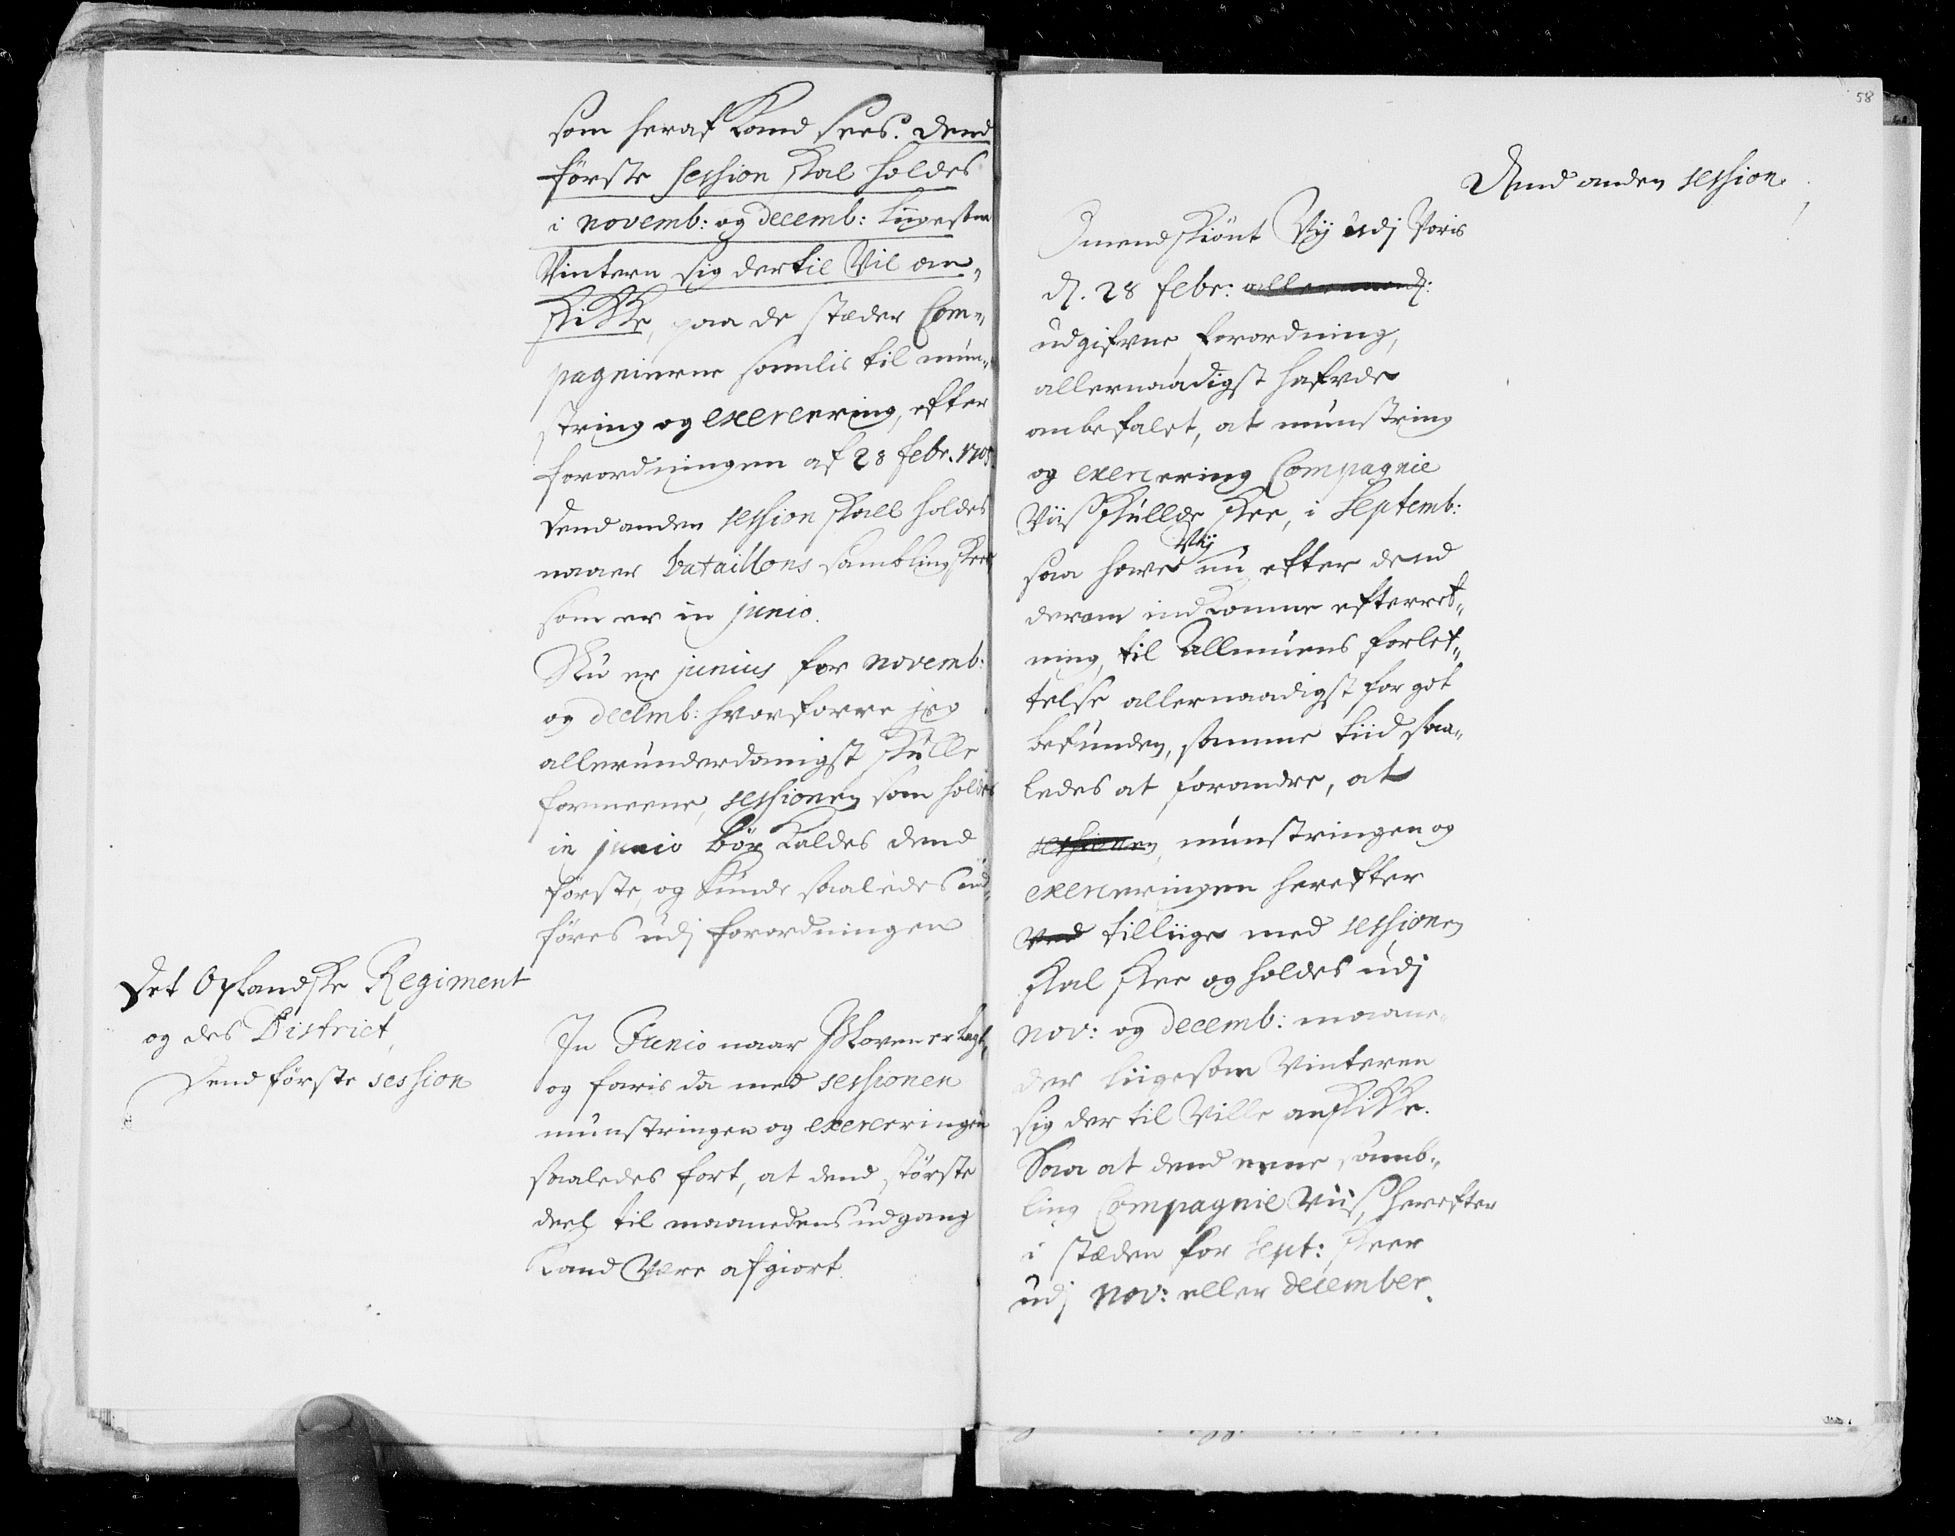 som heraf kand sees. Dend
første session skal holdes
i novemb: og decemb: liigesom
Vintern sig dertil Vil an-
skikke, paa de stæder Com-
pagnierne samlis til mun-
string og exercering, efter
forordningen af 28 febr. 1705.
Dend anden session skall holdes
naar bataillons sambling skeer
som er in junio.
Nu er junius for novemb:
og decemb: hvorforre jeg
allerunderdanigst skulle
formeene, sessionen som holdes
in junio bør kaldes dend
første, og kunde saaledes ind-
føres udj forordningen
Det Oplandske Regiment
og des District,
Dend første session
In Junio naar Ploven er lagt,
og faris da med sessionen
munstringen og exerceringen
saaledes fort, at dend største
deel til maanedens udgang
kand Være afgiort.
58
Dend anden session
Omendskiønt Vij udj Voris
d. 28 febr:
udgifvne forordning,
allernaadigst hafvde
anbefalet, at munstring
og exercering Compagnie
Viis skullde skee, i Septemb:
Vij
saa have nu efter dend
derom indkomne efterret-
ning, til Allmuens forlet-
telse allernaadigst for got
befunden, samme tiid saa-
ledes at forandre, at
sessionen, munstringen og
exerceringen herefter
ved tilliige med sessionen
skal skee og holdes udj
nov: og decemb: maane-
der liigesom Vinteren
sig der til Ville anskikke.
Saa at dend eene samb-
ling Compagnie Viis, herefter
i stæden for Sept: skeer
udj nov: eller december.